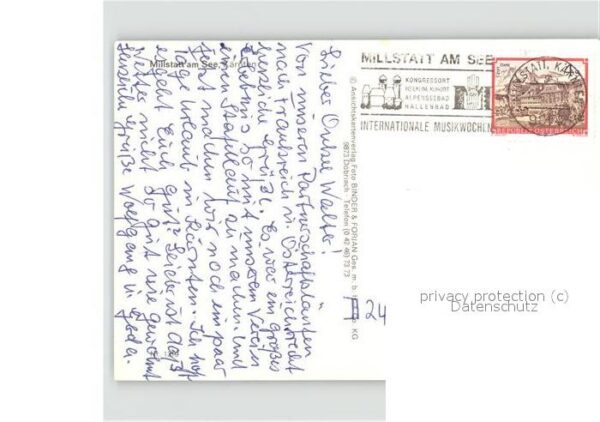 Millstatt am See, Kärnten
Lieber Onkel Walter!
Von unseren Partnerschaftsläufen
nach Frankreich u. Österreich recht
herzliche Grüße. Es war ein großes
Erlebnis so mit unserem Verein
einen Stafellauf zu machen. Und
jetzt machen wir noch ein paar
Tage Urlaub in Kärnten. Ich hoffe
es geht Euch gut? Leider ist das
Wetter nicht so gut wie gewohnt
Grüße Wolfgang u.
© Ansichtskartenverlag Foto BINDER & FORIAN Ges. m. b. KG
9873 Döbriach - Telefon (0 42 46) 73 73
MILLSTATT AM SEE
KONGRESSORT
HEILKLIM. KURORT
ALPENSEEBAD
HALLENBAD
INTERNATIONALE MUSIKWOCHEN
REPUBLIK ÖSTERREICH
24
privacy protection (c)
Datenschutz